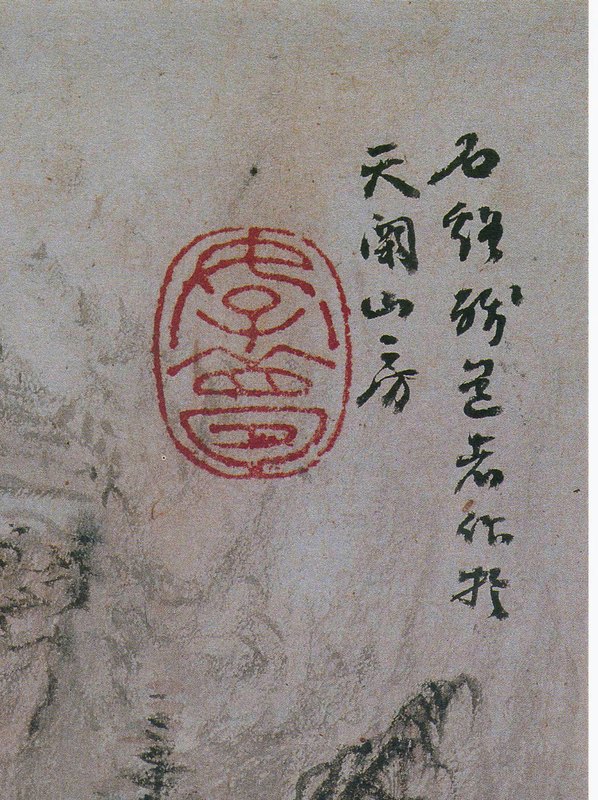 石谿殘道者作於
天闕山房